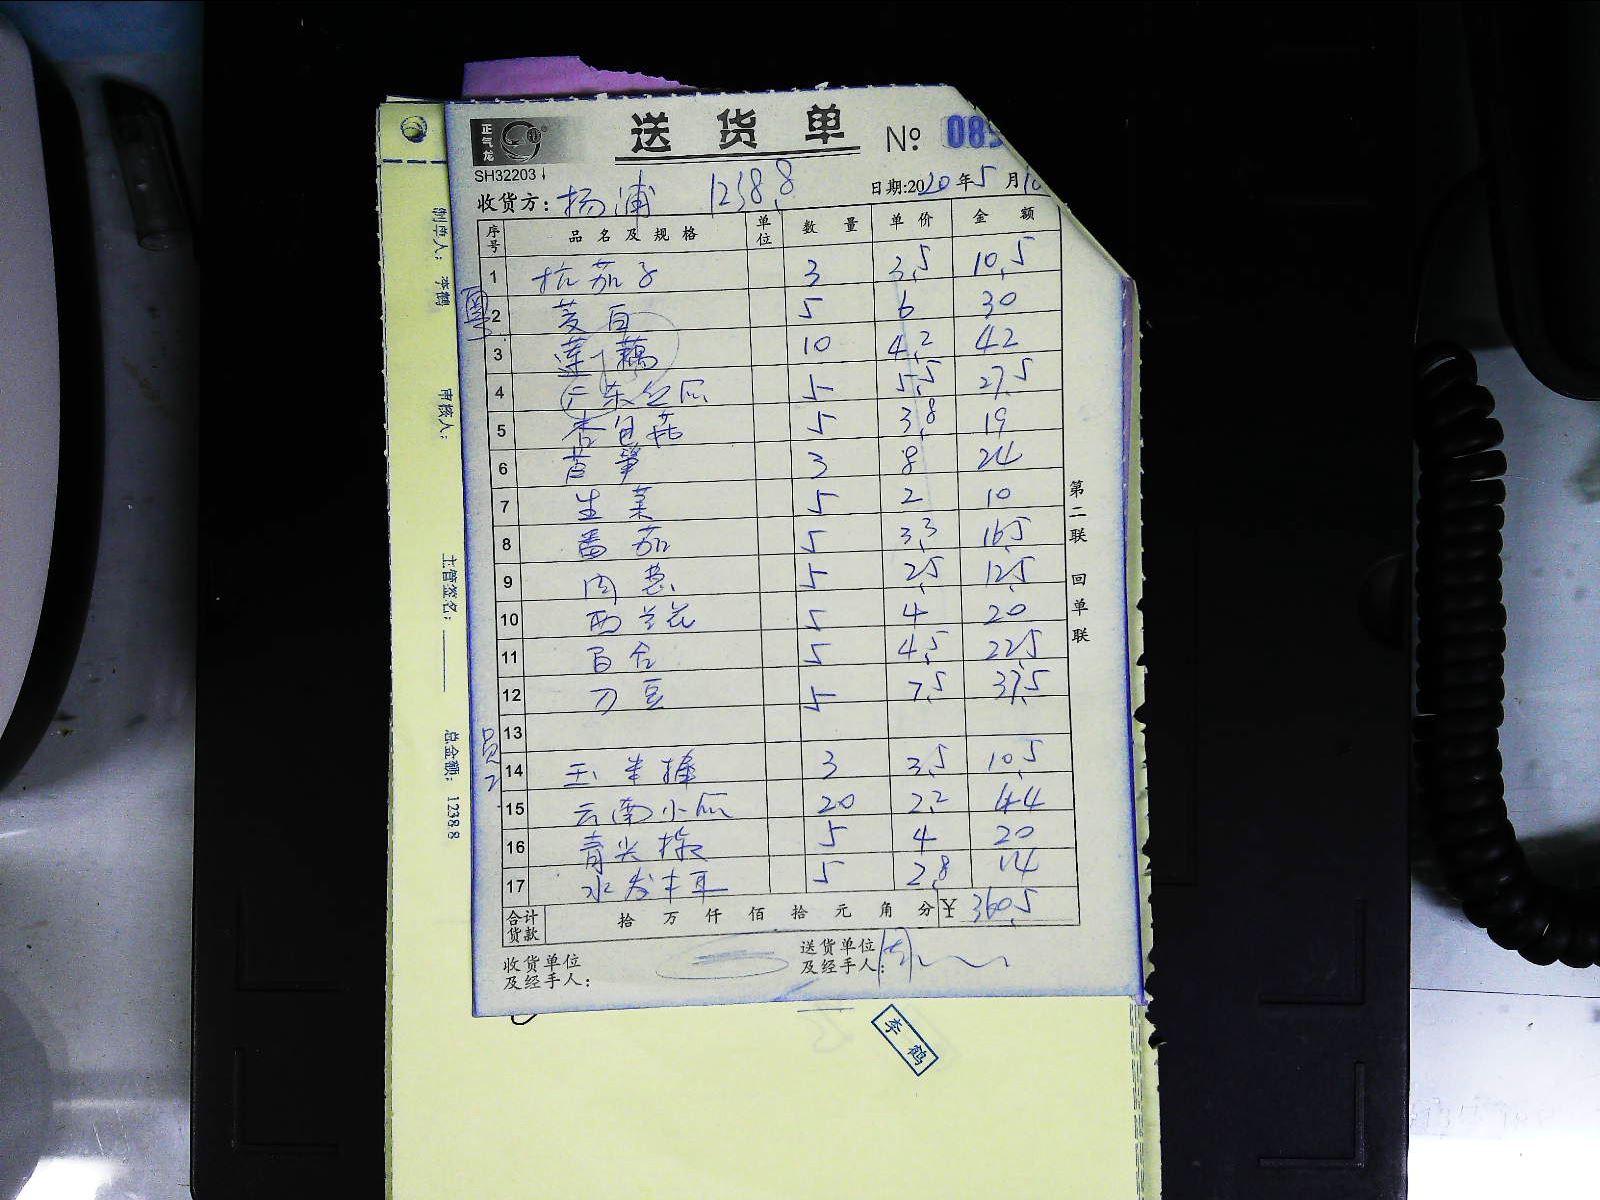 正气龙
送货单 № 085
SH32203
收货方: 杨浦 1238.8 日期:2020年5月10
序号 品名及规格 单位 数量 单价 金额
1 杭茄子 3 3.5 10.5
2 茭白 5 6 30
3 莲藕 10 4.2 42
4 广东 5 5.5 27.5
5 杏鲍菇 5 3.8 19
6 芦笋 3 8 24
7 生菜 5 2 10
8 番茄 5 3.3 16.5
9 肉葱 5 2.5 12.5
10 西兰花 5 4 20
11 百合 5 4.5 22.5
12 刀豆 5 7.5 37.5
13
14 玉米棒 3 3.5 10.5
15 云南小瓜 20 2.2 44
16 青尖椒 5 4 20
17 水发木耳 5 2.8 14
合计货款 拾 万 仟 佰 拾 元 角 分 ¥ 360.5
收货单位及经手人:
送货单位及经手人:
第二联 回单联
员工
制单人: 李鹤
审核人:
主管签名:
总金额: 1238.8
李鹤